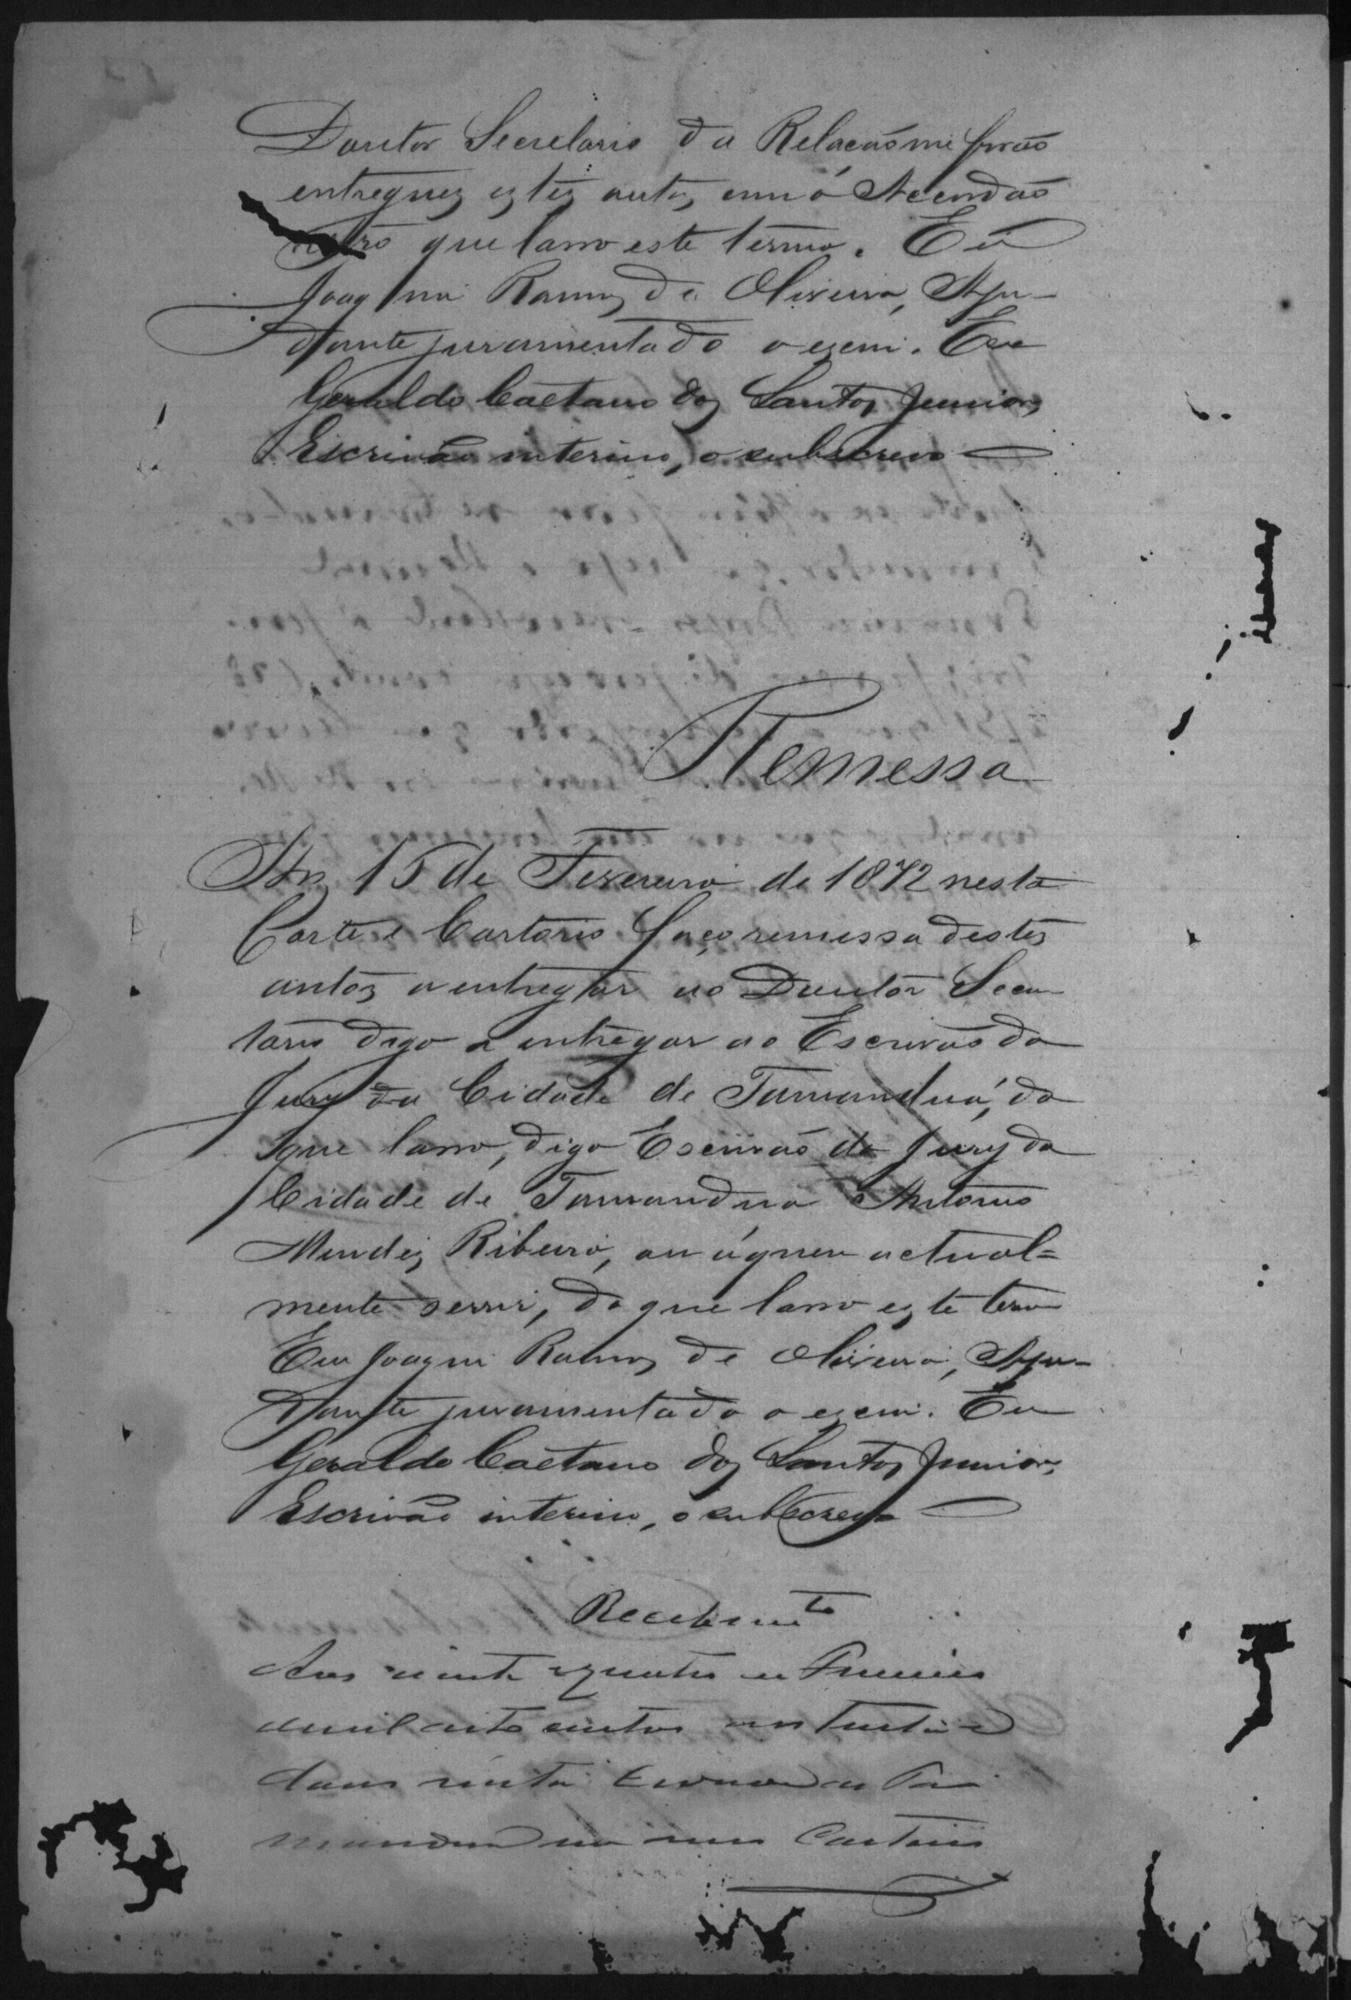 Doutor Secretario da Relação me forão
entregues estes autos com o Accordão
retro que lavro este termo. Eu
Joaquim Ramos de Oliveira, Aju-
dante juramentado o escrevi. Eu
Geraldo Caetano dos Santos Junior,
Escrivão interino, o subscrevo
Remessa
Aos 15 de Fevereiro de 1872 nesta
Corte e Cartorio faço remessa destes
autos a entregar ao Doutor Secre
tario digo a entregar ao Escrivão do
Jury da Cidade de Tamanduá, do
que lavro, digo Escrivão do Jury da
Cidade de Tamandua Antonio
Mendes Ribeiro, ou á quem actual=
mente servir, do que lavro este termo
Eu Joaquim Ramos de Oliveira, Aju-
dante juramentado o escrevi. Eu
Geraldo Caetano dos Santos Junior,
Escrivão interino, o subscrevo
Recebimto
Aos vinte e quatro de Fevereiro
de mil oito centos e setenta e
dous nesta Cidade de Ta
mandua em meu Cartorio